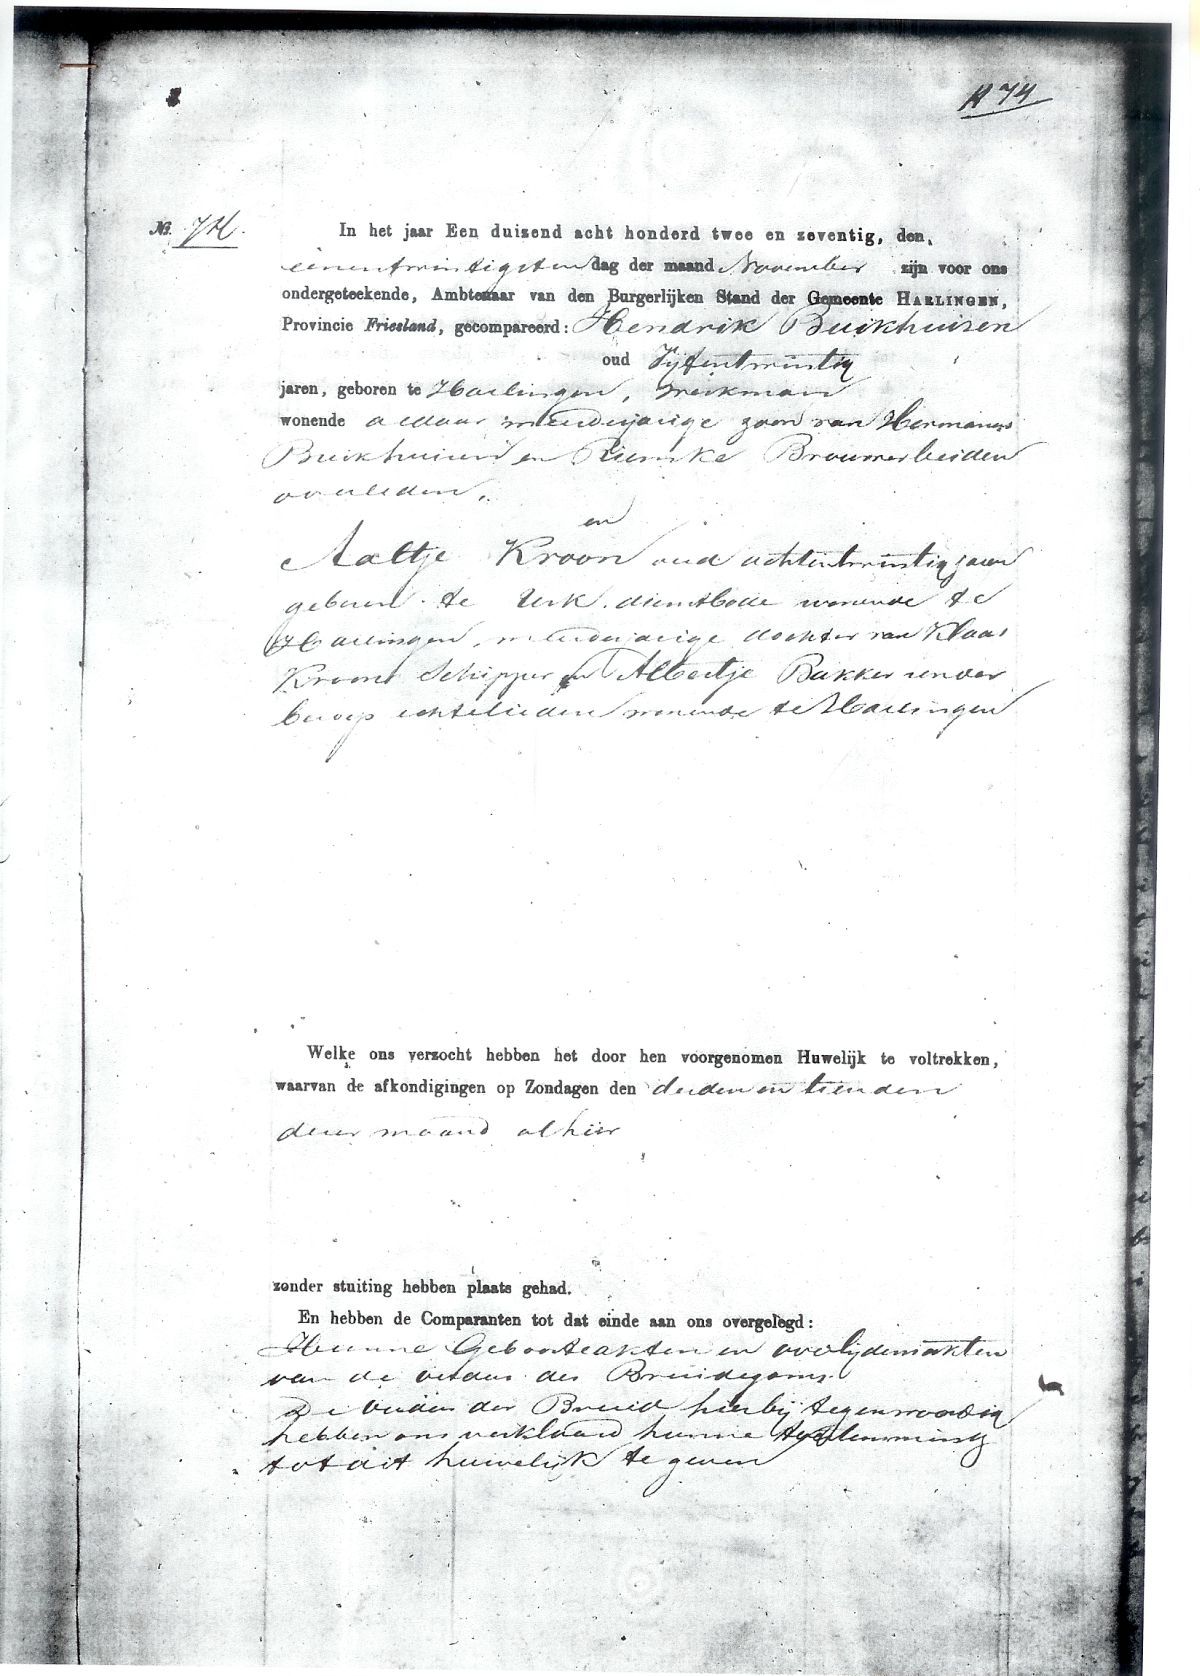 A 74
No. 74.
In het jaar Een duizend acht honderd twee en zeventig, den,
eenentwintigsten dag der maand November zijn voor ons
ondergeteekende, Ambtenaar van den Burgerlijken Stand der Gemeente HARLINGEN,
Provincie Friesland, gecompareerd: Hendrik Buikhuisen
oud Vijfentwintig
jaren, geboren te Harlingen, werkman
wonende aldaar meerderjarige zoon van Hermanus
Buikhuisen en Riemke Brouwer beiden
overleden,
en
Aaltje Kroon oud achtentwintig jaren
geboren te Urk dienstbode wonende te
Harlingen, meerderjarige dochter van Klaas
Kroon Schipper en Albertje Bakker zonder
beroep echtelieden wonende te Harlingen
Welke ons verzocht hebben het door hen voorgenomen Huwelijk te voltrekken,
waarvan de afkondigingen op Zondagen den derden en tienden
dezer maand alhier
zonder stuiting hebben plaats gehad.
En hebben de Comparanten tot dat einde aan ons overgelegd:
Hunne Geboorteakten en overlijdensakten
van de ouders des Bruidegoms.
De ouders der Bruid hierbij tegenwoordig
hebben ons verklaard hunne toestemming
tot dit huwelijk te geven